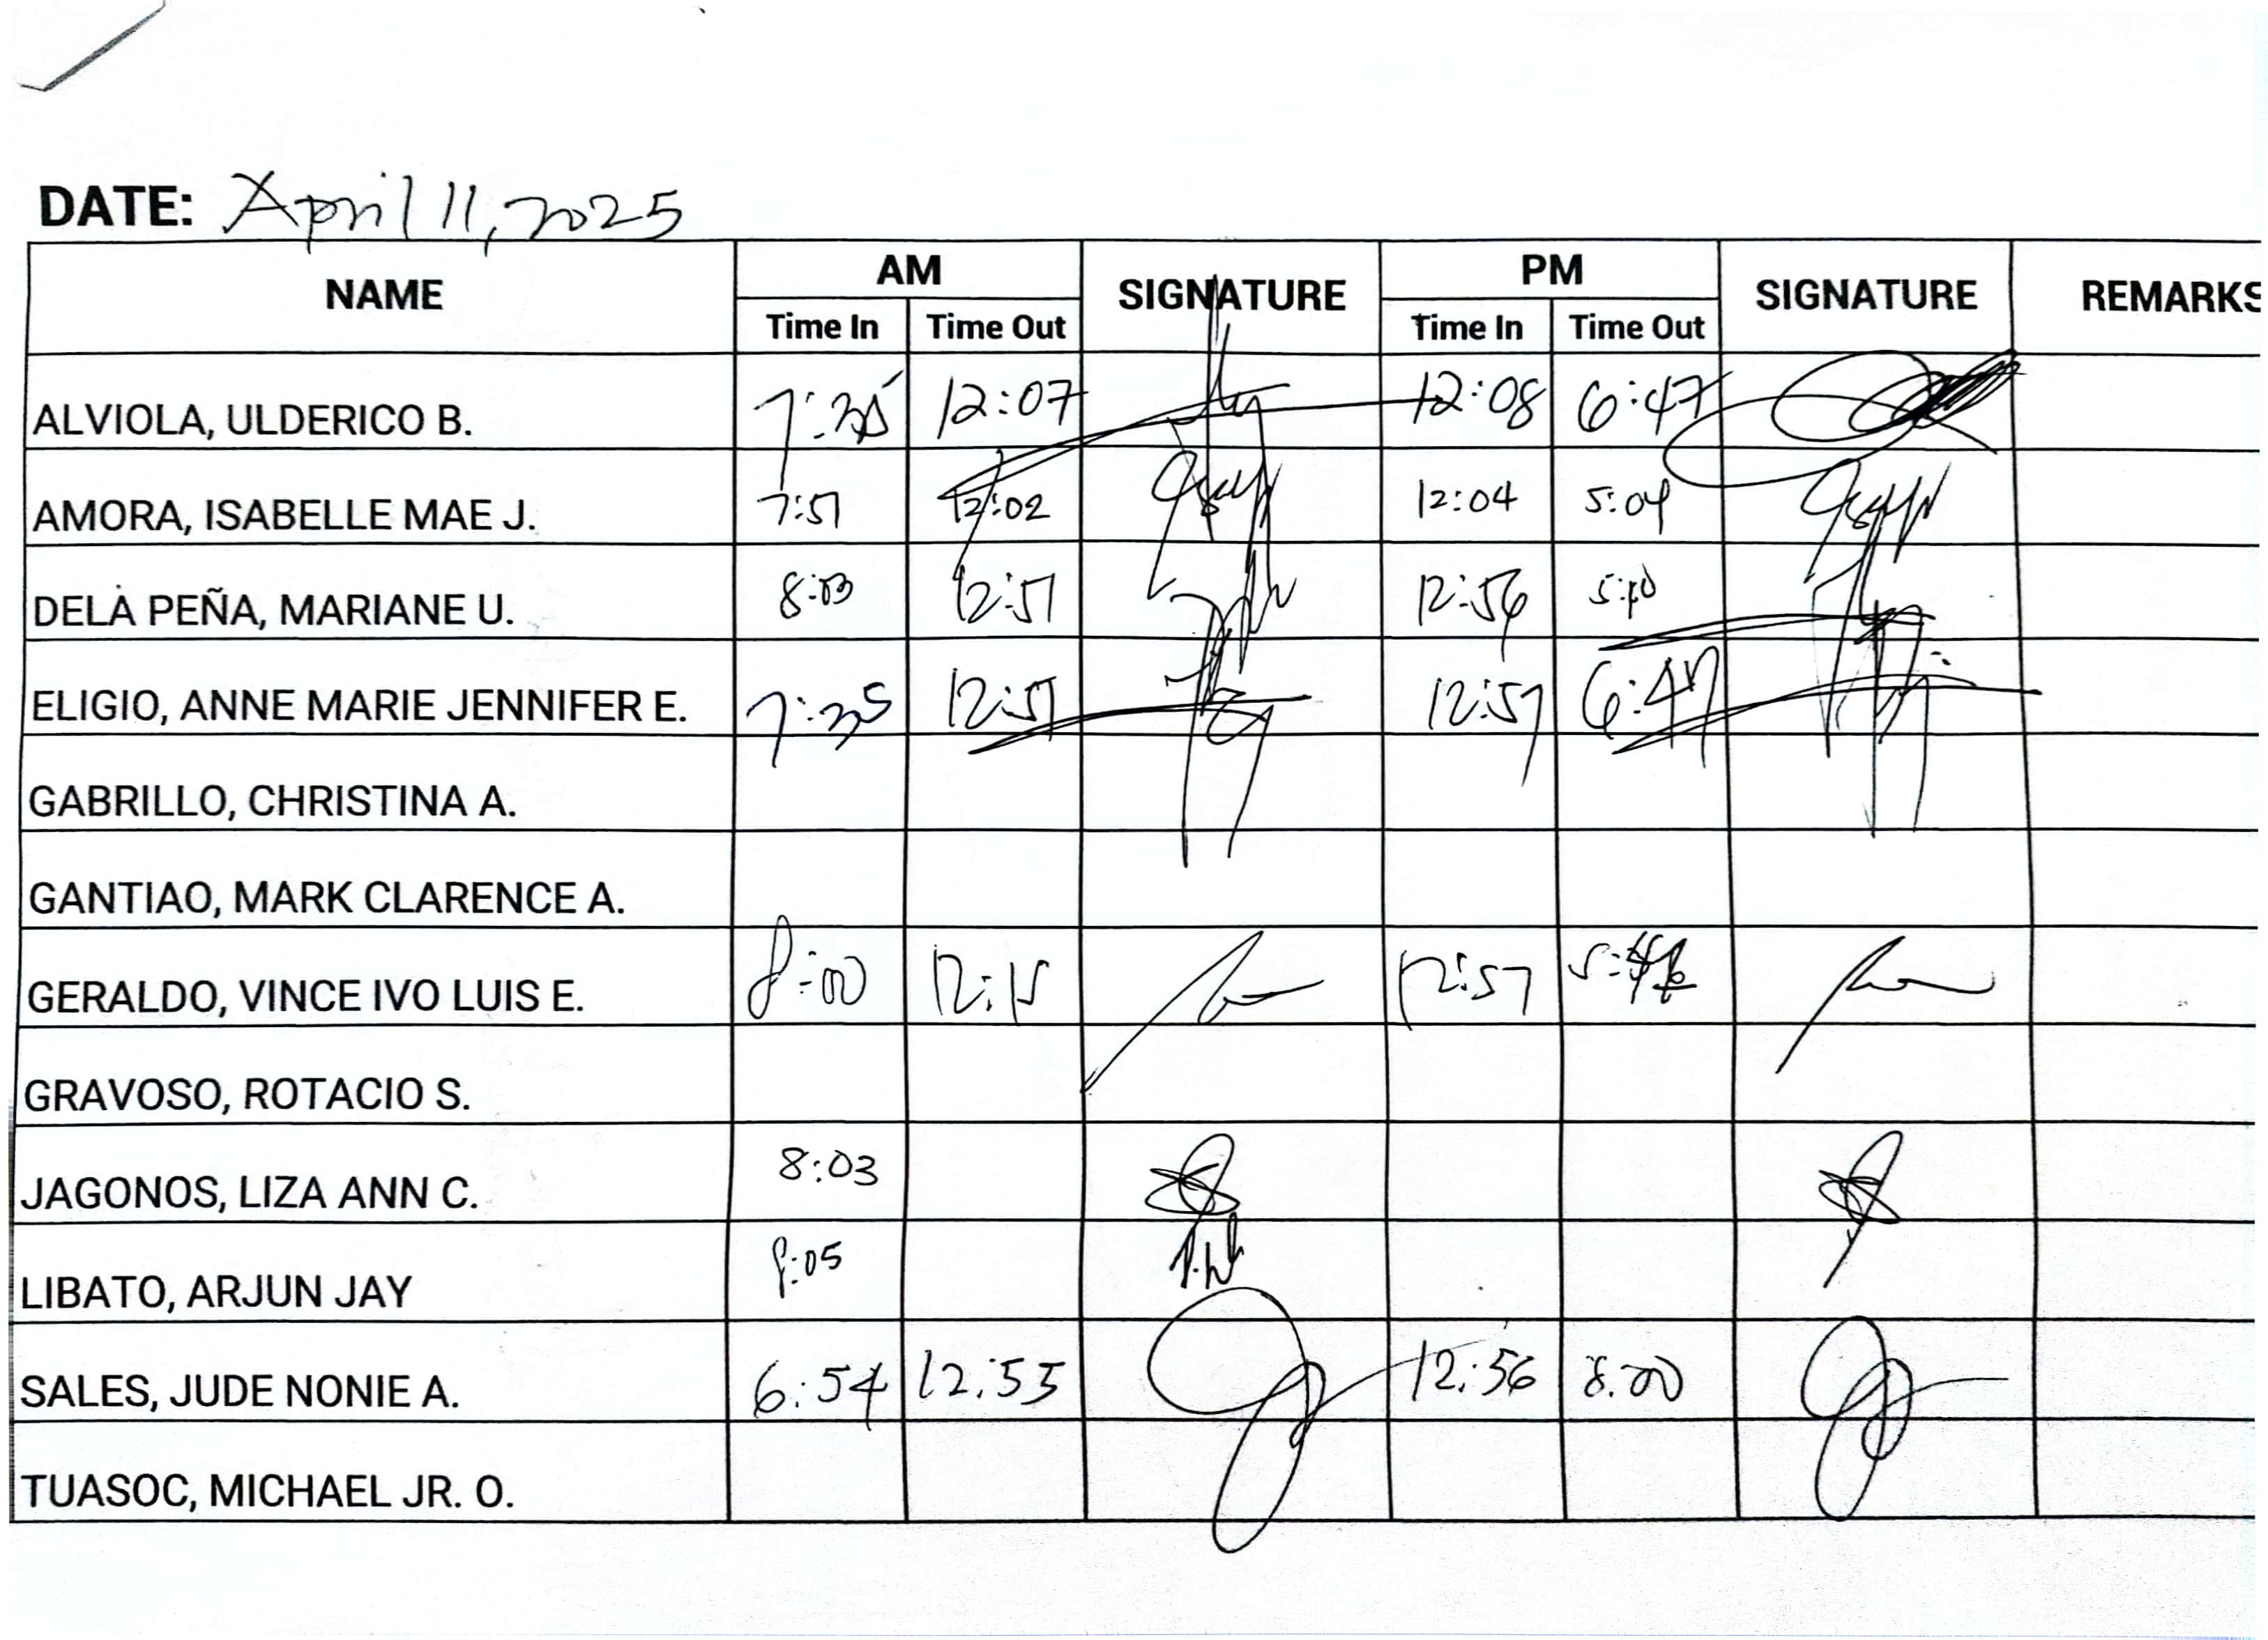 DATE: April 11, 2025
NAME AM SIGNATURE PM SIGNATURE REMARKS
Time In Time Out Time In Time Out
ALVIOLA, ULDERICO B. 12:07 12:08 6:47
AMORA, ISABELLE MAE J. 7:51 12:02 12:04 5:04
DELA PEÑA, MARIANE U. 8:03 12:51 12:56
ELIGIO, ANNE MARIE JENNIFER E. 7:35 12:51 12:57 6:47
GABRILLO, CHRISTINA A.
GANTIAO, MARK CLARENCE A.
GERALDO, VINCE IVO LUIS E. 8:00 12:15 12:57
GRAVOSO, ROTACIO S.
JAGONOS, LIZA ANN C. 8:03
LIBATO, ARJUN JAY 8:05
SALES, JUDE NONIE A. 6:54 12:55 12:56 8:00
TUASOC, MICHAEL JR. O.